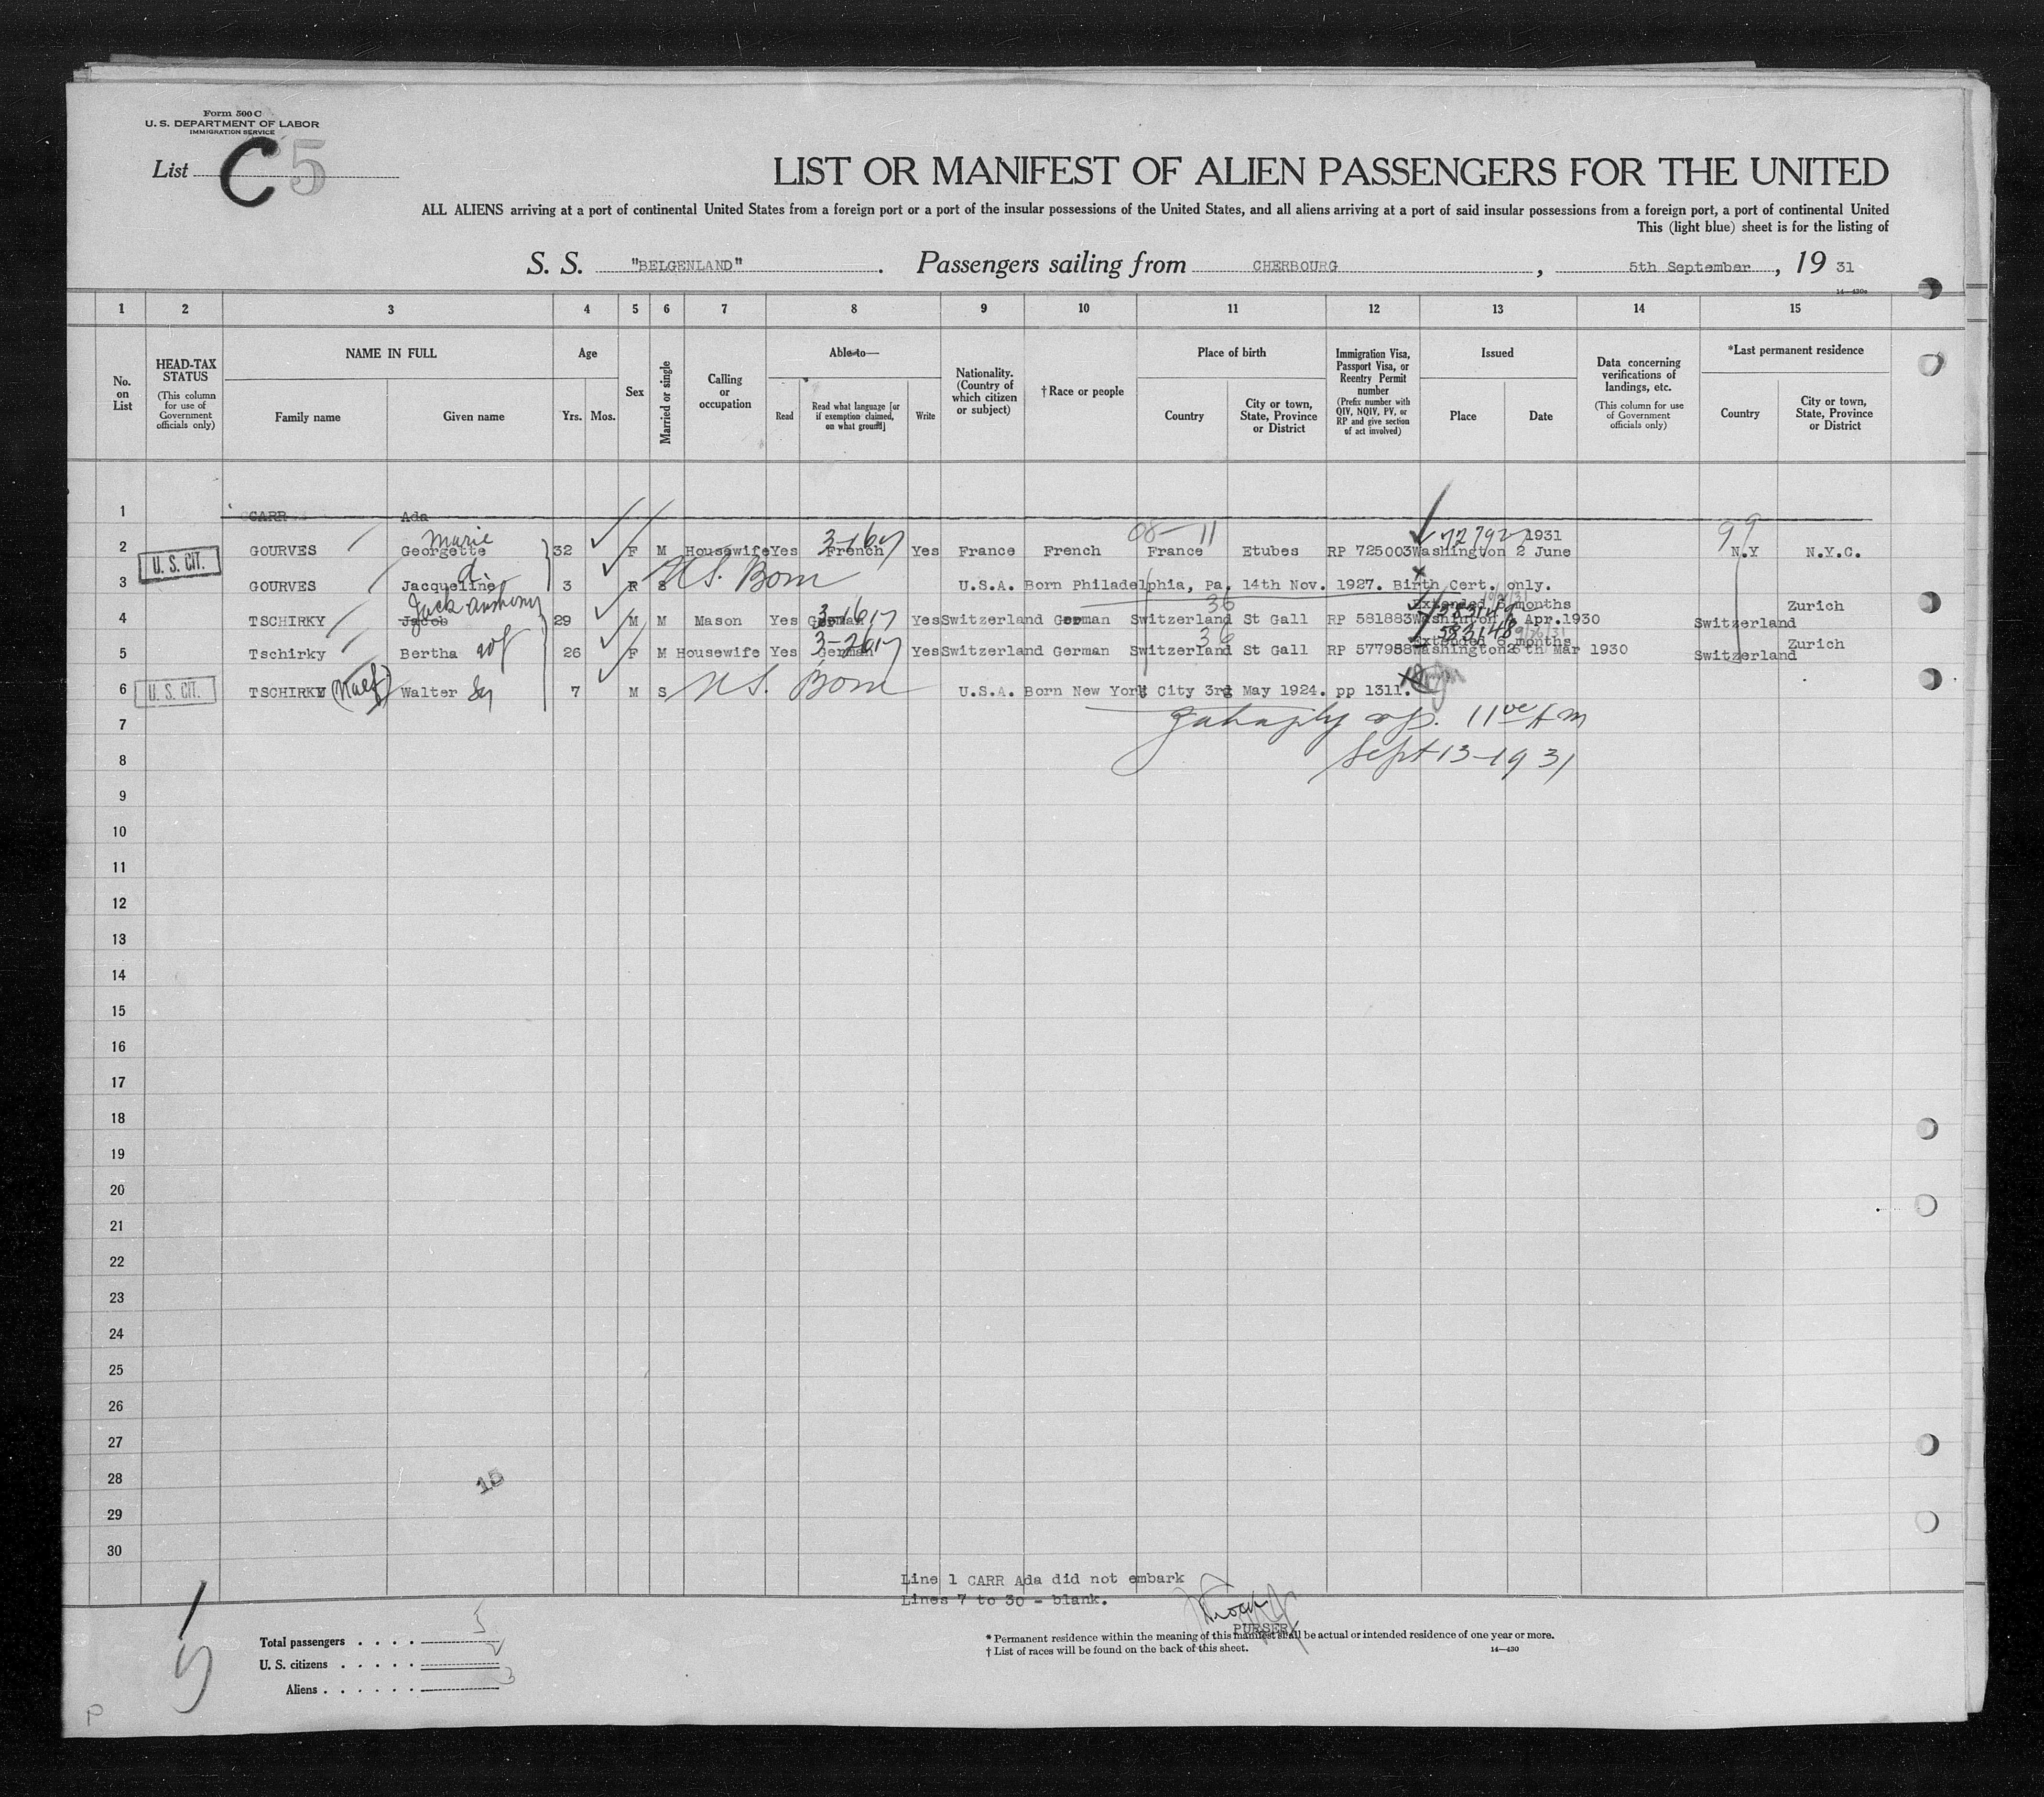 Form 500 C
U. S. DEPARTMENT OF LABOR
IMMIGRATION SERVICE
List C 5
LIST OR MANIFEST OF ALIEN PASSENGERS FOR THE UNITED
ALL ALIENS arriving at a port of continental United States from a foreign port or a port of the insular possessions of the United States, and all aliens arriving at a port of said insular possessions from a foreign port, a port of continental United
This (light blue) sheet is for the listing of
S. S. "BELGENLAND". Passengers sailing from CHERBOURG, 5th September, 19 31
14—430a
1 2 3 4 5 6 7 8 9 10 11 12 13 14 15
No. on List
HEAD-TAX STATUS (This column for use of Government officials only)
NAME IN FULL
Family name
Given name
Age
Yrs. Mos.
Sex
Married or single
Calling or occupation
Able to—
Read
Read what language [or if exemption claimed, on what ground]
Write
Nationality. (Country of which citizen or subject)
† Race or people
Place of birth
Country
City or town, State, Province or District
Immigration Visa, Passport Visa, or Reentry Permit number (Prefix number with QIV, NQIV, PV, or RP and give section of act involved)
Issued
Place
Date
Data concerning verifications of landings, etc. (This column for use of Government officials only)
*Last permanent residence
Country
City or town, State, Province or District
1 CARR Ada
Marie 3-1617 08-11 727921 1931 99
2 GOURVES Georgette 32 F M Housewife Yes French Yes France French France Etubes RP 725003 Washington 2 June N.Y N.Y.C.
U. S. CIT.
3 GOURVES Jacqueline 3 F S U.S. Born U.S.A. Born Philadelphia, Pa. 14th Nov. 1927. Birth Cert. only.
Jack Anthony 3-1617 36 Extended 6 months Zurich
4 TSCHIRKY Jacob 29 M M Mason Yes German Yes Switzerland German Switzerland St Gall RP 581883 Washinton Apr.1930 Switzerland
3-2617 36 583148 Extended 6 months Zurich
5 Tschirky Bertha 26 F M Housewife Yes German Yes Switzerland German Switzerland St Gall RP 577958 Washington 26th Mar 1930 Switzerland
6 U. S. CIT. TSCHIRKY Walter 7 M S U.S. Born U.S.A. Born New York City 3rd May 1924. pp 1311.
7 11 00 AM
8 Sept 13-1931
9
10
11
12
13
14
15
16
17
18
19
20
21
22
23
24
25
26
27
28 15
29
30
Line 1 CARR Ada did not embark
Lines 7 to 30 - blank.
PURSER
Total passengers . . . . 5
U. S. citizens . . . . . 2
Aliens . . . . . . 3
* Permanent residence within the meaning of this manifest shall be actual or intended residence of one year or more.
† List of races will be found on the back of this sheet.
14—430
P